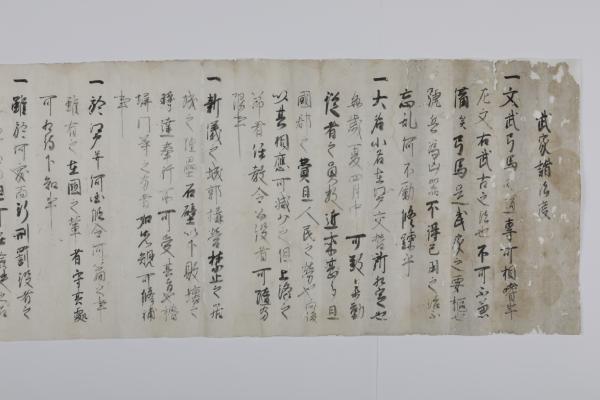 武家諸法度
一文武弓馬之道専可相嗜事
左文右武古之法也不可不兼
備矣弓馬是武家之要枢也
號兵為凶器不得已用之治不
忘乱何不励修錬乎
一大名小名在江戸交替所相定也
毎歳夏四月中可致参勤
従者之員数近来甚多且
國郡之費且人民之労也向後
以其相應可減少之但上洛之
節者任教令公役者可随分
限事
一新儀之城郭構営禁止之居
城之隍塁石壁以下敗壊之
時達奉行所可受其旨也櫓
塀門等之分者如先規可修補
事
一於江戸并何国假令何篇之事
雖有之在國之輩者守其處
可相待下知事
一雖於何處而行刑罰役者之